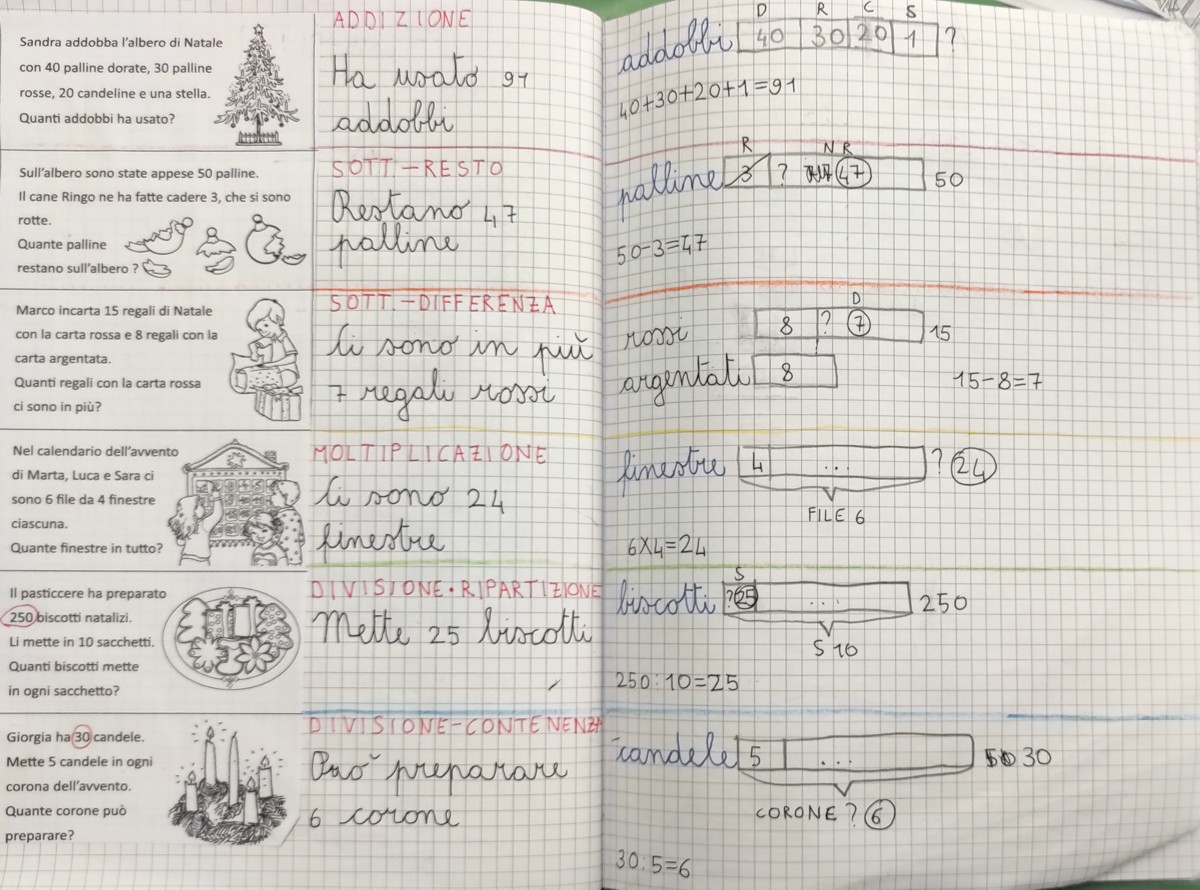 Sandra addobba l'albero di Natale
con 40 palline dorate, 30 palline
rosse, 20 candeline e una stella.
Quanti addobbi ha usato?
ADDIZIONE
Ha usato 91
addobbi
D R C S
addobbi 40 30 20 1 ?
40+30+20+1=91
Sull'albero sono state appese 50 palline.
Il cane Ringo ne ha fatte cadere 3, che si sono
rotte.
Quante palline
restano sull'albero ?
SOTT.-RESTO
Restano 47
palline
R N R
palline 3 ? 47 50
50-3=47
Marco incarta 15 regali di Natale
con la carta rossa e 8 regali con la
carta argentata.
Quanti regali con la carta rossa
ci sono in più?
SOTT.-DIFFERENZA
Ci sono in più
7 regali rossi
D
rossi 8 ? 7 15
argentati 8
15-8=7
Nel calendario dell'avvento
di Marta, Luca e Sara ci
sono 6 file da 4 finestre
ciascuna.
Quante finestre in tutto?
MOLTIPLICAZIONE
Ci sono 24
finestre
finestre 4 ... ? 24
FILE 6
6X4=24
Il pasticcere ha preparato
250 biscotti natalizi.
Li mette in 10 sacchetti.
Quanti biscotti mette
in ogni sacchetto?
DIVISIONE·RIPARTIZIONE
Mette 25 biscotti
S
biscotti ? 25 ... 250
S 10
250:10=25
Giorgia ha 30 candele.
Mette 5 candele in ogni
corona dell'avvento.
Quante corone può
preparare?
DIVISIONE-CONTENENZA
Può preparare
6 corone
candele 5 ... 30
CORONE ? 6
30:5=6